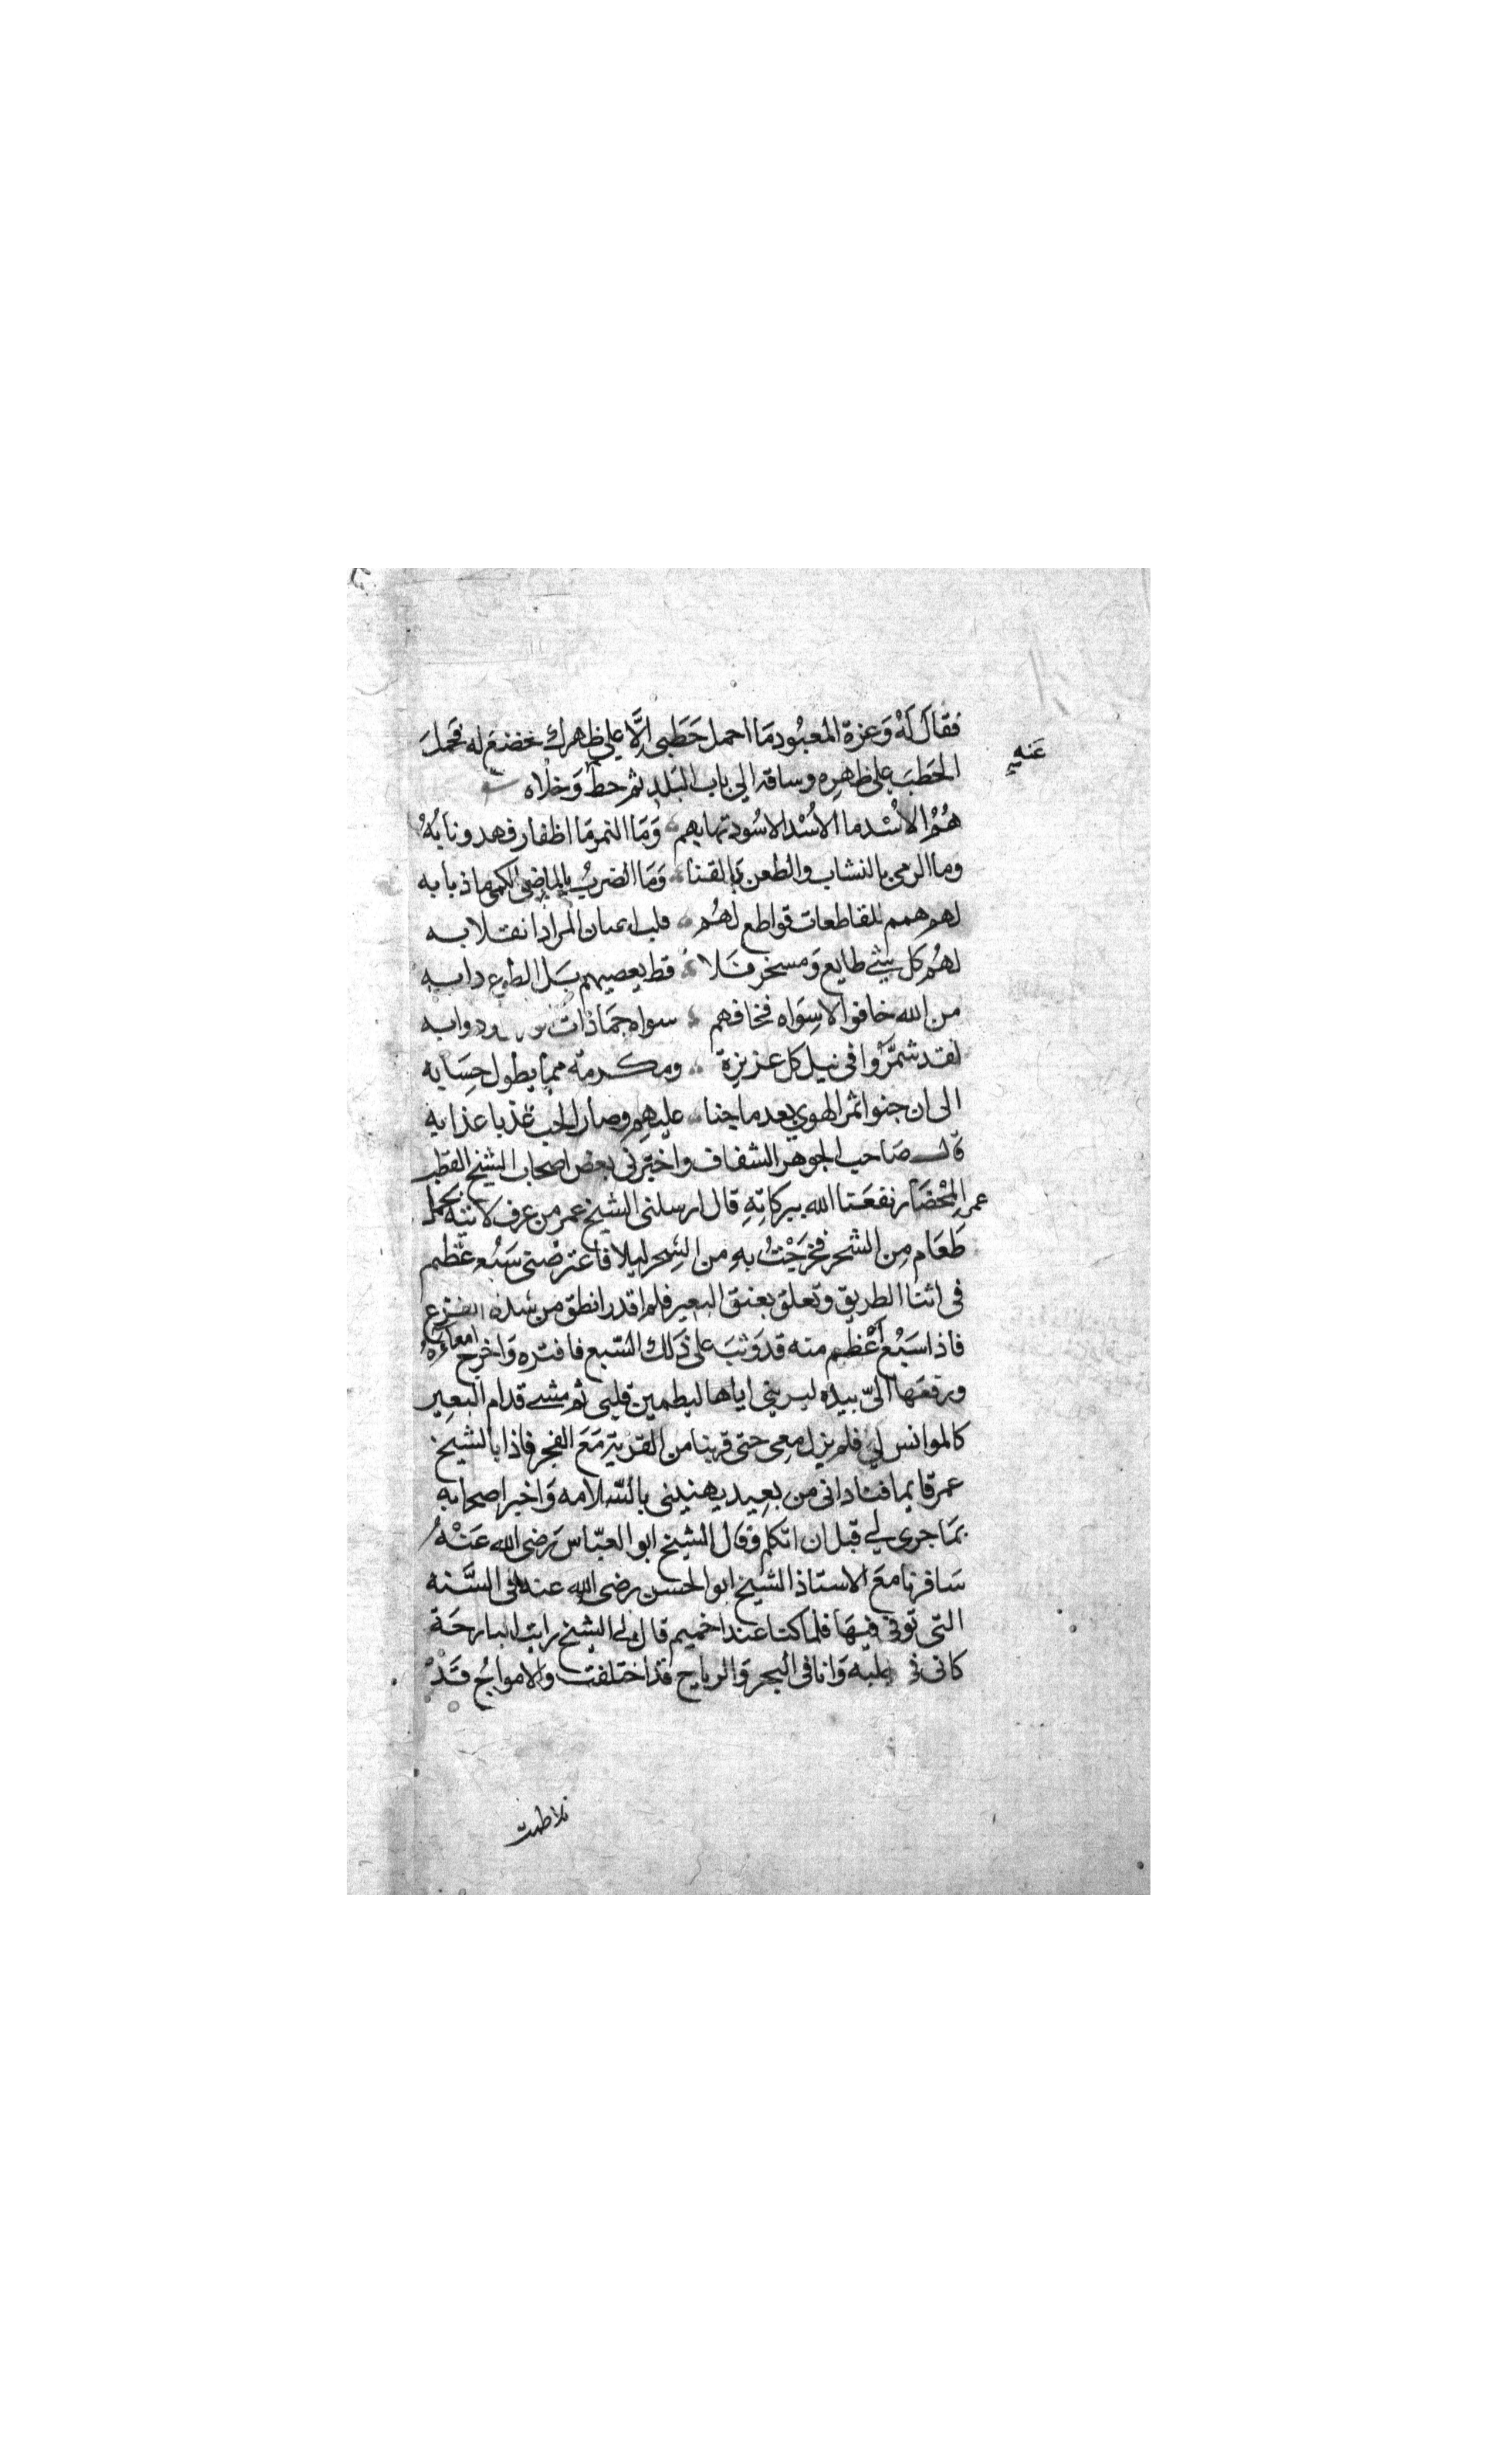 فقال لَهُ وَعزة المعبُود مَا احمل حَطَبى اِلَّا على ظهرك فخضع له فحملَ
عَنه
الحَطبَ على ظهرِه وساقه الي باب البَلد ثم حط وَخلاه
هُمُ الاُسْد ما الاُسْد الاسُود تهابهم وَمَا النمر مَا اظفار فهد ونابُهُ
وما الرمى بالنشاب والطعن بالقنا وَمَا الضربُ بالماضى الكمى ما ذبابه
لهم همم للقاطعات قواطع لهُم قلب اعيان المراد انقلابه
لهُم كل شئ طايع وَمسخر فَلا قط يعصيهم بَل الطوع دابه
من الله خافوا لا سِوَاه فخافهم سواه جمَاذات ودوابه
لقد شمَّرُوا فى نيل كل عزيزة ومكرمة مما يطول حِسَابه
الى ان جنوا ثمر الهوى بعد ما جنا عليهم وصار الحب عذبا عذابه
قال صَاحب الجوهر الشفاف واخبرنى بعض اصحاب الشيخ القطب
عمر المِحْضَار نفعَنا الله ببركاتهِ قال ارسلنى الشيخ عمر من عرف لاتيه بحمل
طَعَام مِن الشحر فخرَجْتُ بهِ من الشِحر ليلا فاعترضنى سَبُع عظيم
فى اثنا الطريق وتعلق بعنق البعير فلم اقدر انطق من شدة الفزع
فاذا سَبُع اعْظم منه قد وَثبَ على ذَلك السّبع فافترسه وَاخرج امعاءَهُ
ورفعهَا اليّ بيده ليرينى اياها ليطمين قلبى ثم مشى قدام البعِير
كالموانس لي فلم يزل معِى حتى قربنا من القريَة مَعَ الفجر فاذا بالشيخ
عمر قايما فناداني من بعِيد يهنينى بالسّلامه وَاخبر اصحابه
بمَا جرى لي قبل ان اتكلم وقال الشيخ ابو العبّاس رَضى الله عَنْهُ
سَافرنا معَ الاستاذ الشيخ ابو الحسن رضى الله عنه فى السَّنه
التى توفى فيهَا فلما كنا عند اخميم قال لى الشيخ رايت البارحَة
كانى فى جلبه وَانا فى البحر وَالرياح قد اختلفت والامواجُ قَدْ
تلاطمت